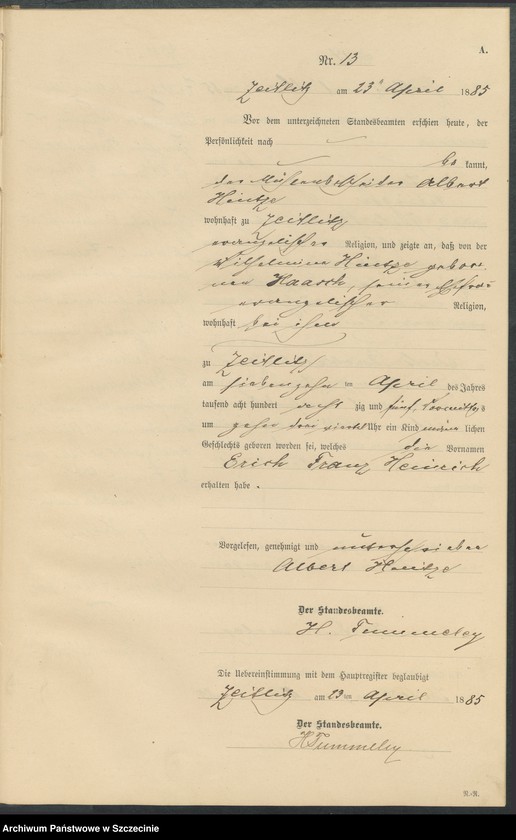 A.
Nr. 13
Zeitlitz am 23 April 1885
Vor dem unterzeichneten Standesbeamten erschien heute, der
Persönlichkeit nach
be kannt,
der Mühlenbesitzer Albert
Hintze
wohnhaft zu Zeitlitz
evangelischer Religion, und zeigte an, daß von der
Wilhelmine Hintze gebor
nen Haasch, seiner Ehefrau
evangelischer Religion,
wohnhaft bei ihm
zu Zeitlitz
am siebenzehn ten April des Jahres
tausend acht hundert acht zig und fünf, Vormittags
um zehn drei viertel Uhr ein Kind männ lichen
Geschlechts geboren worden sei, welches die Vornamen
Erich Franz Heinrich
erhalten habe.
Vorgelesen, genehmigt und unterschrieben
Albert Hintze
Der Standesbeamte.
H.
Die Uebereinstimmung mit dem Hauptregister beglaubigt
Zeitlitz am 23 ten April 1885
Der Standesbeamte.
N.-R.
Archiwum Państwowe w Szczecinie